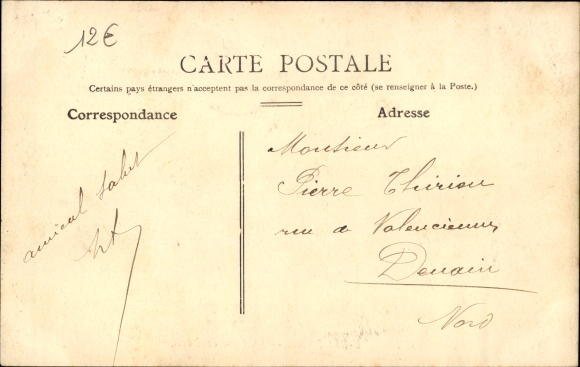 12€
CARTE POSTALE
Certains pays étrangers n'acceptent pas la correspondance de ce côté (se renseigner à la Poste.)
Correspondance
Adresse
amical salut
Monsieur
Pierre Thirion
rue de Valenciennes
Denain
Nord